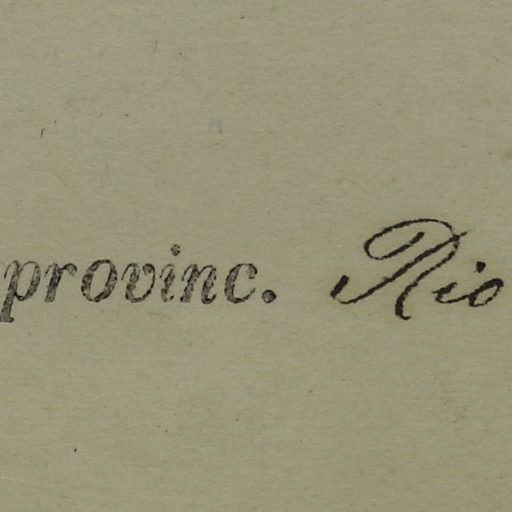 provinc. Rio